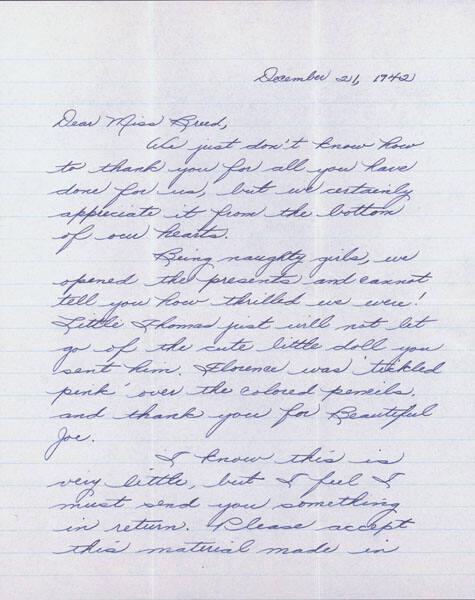 December 21, 1942
Dear Miss Breed,
We just don't know how
to thank you for all you have
done for us, but we certainly
appreciate it from the bottom
of our hearts.
Being naughty girls, we
opened the presents and cannot
tell you how thrilled we were!
Little Thomas just will not let
go of the cute little doll you
sent him. Florence was 'tickled
pink' over the colored pencils.
and thank you for Beautiful
Joe.
I know this is
very little, but I feel I
must send you something
in return. Please accept
this material made in